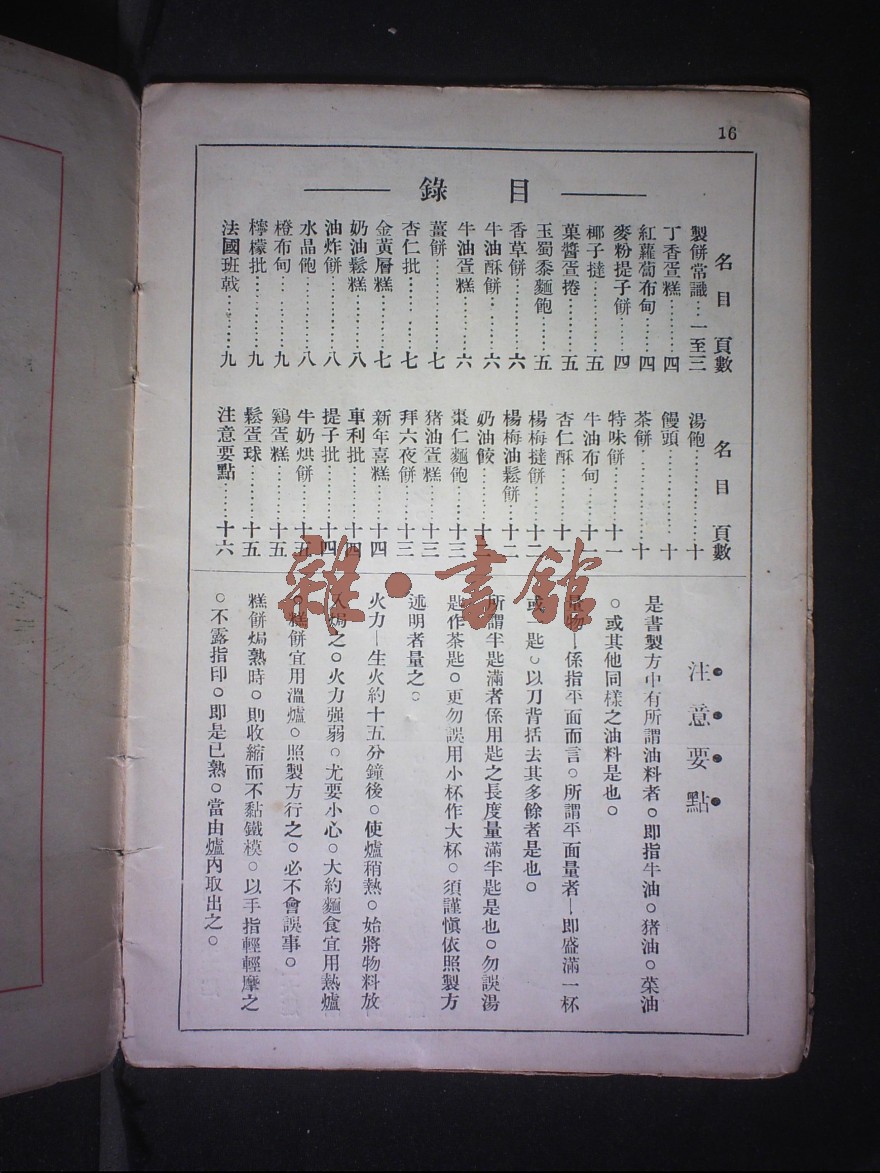 16
目錄
名目 頁數
製餅常識…一至三
丁香蛋糕……四
紅蘿蔔布甸……四
麥粉提子餅……四
椰子撻………五
菓醬蛋捲………五
玉蜀黍麵飽……五
香草餅………六
牛油酥餅……六
牛油蛋糕……六
薑餅…………七
杏仁批………七
金黃層糕……七
奶油鬆糕……八
油炸餅………八
水晶飽………八
橙布甸………九
檸檬批………九
法國班戟………九
名目 頁數
湯飽…………十
饅頭…………十
茶餅…………十
特味餅………十一
牛油布甸……十一
杏仁酥………十一
楊梅撻餅……十二
楊梅油鬆餅……十二
奶油餃………十二
棗仁麵飽……十三
猪油蛋糕……十三
拜六夜餅……十三
新年喜糕……十四
車利批………十四
提子批………十四
牛奶烘餅……十五
鷄蛋糕………十五
鬆蛋球………十五
注意要點……十六
注意要點
是書製方中有所謂油料者。即指牛油。猪油。菜油
。或其他同樣之油料是也。
量物—係指平面而言。所謂平面量者—即盛滿一杯
或一匙。以刀背括去其多餘者是也。
所謂半匙滿者係用匙之長度量滿半匙是也。勿誤湯
匙作茶匙。更勿誤用小杯作大杯。須謹慎依照製方
述明者量之。
火力—生火約十五分鐘後。使爐稍熱。始將物料放
入焗之。火力强弱。尤要小心。大約麵食宜用熱爐
。糕餅宜用溫爐。照製方行之。必不會誤事。
糕餅焗熟時。則收縮而不黏鐵模。以手指輕輕摩之
。不露指印。即是已熟。當由爐內取出之。
雜·書館